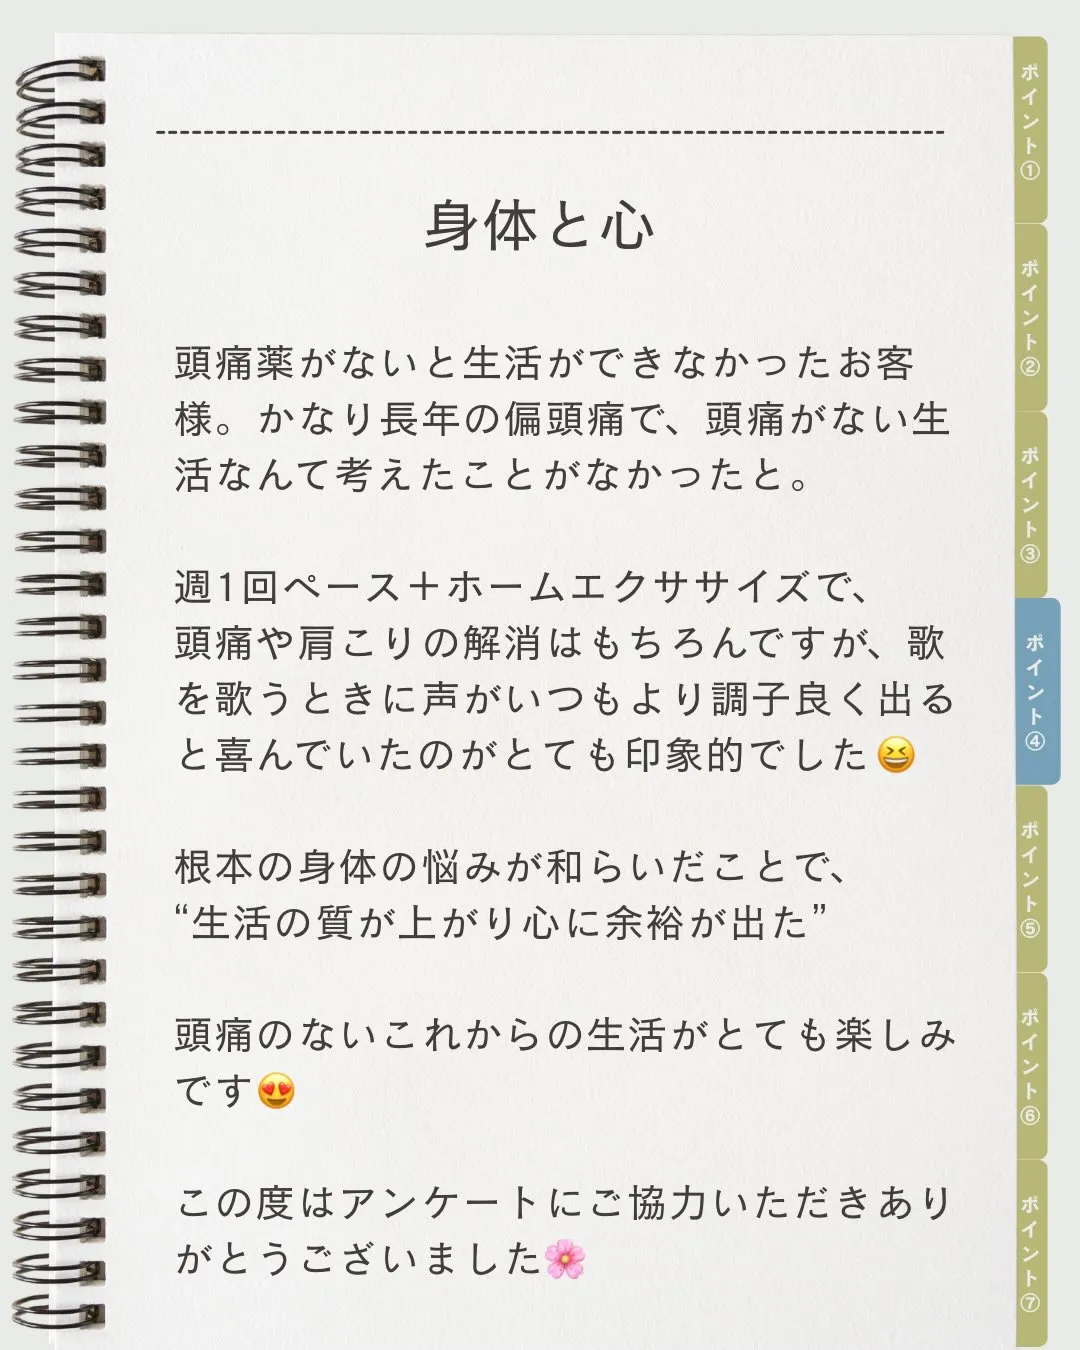 身体と心
頭痛薬がないと生活ができなかったお客
様。かなり長年の偏頭痛で、頭痛がない生
活なんて考えたことがなかったと。
週1回ペース＋ホームエクササイズで、
頭痛や肩こりの解消はもちろんですが、歌
を歌うときに声がいつもより調子良く出る
と喜んでいたのがとても印象的でした😆
根本の身体の悩みが和らいだことで、
“生活の質が上がり心に余裕が出た”
頭痛のないこれからの生活がとても楽しみ
です😍
この度はアンケートにご協力いただきあり
がとうございました🌸
ポイント①
ポイント②
ポイント③
ポイント④
ポイント⑤
ポイント⑥
ポイント⑦